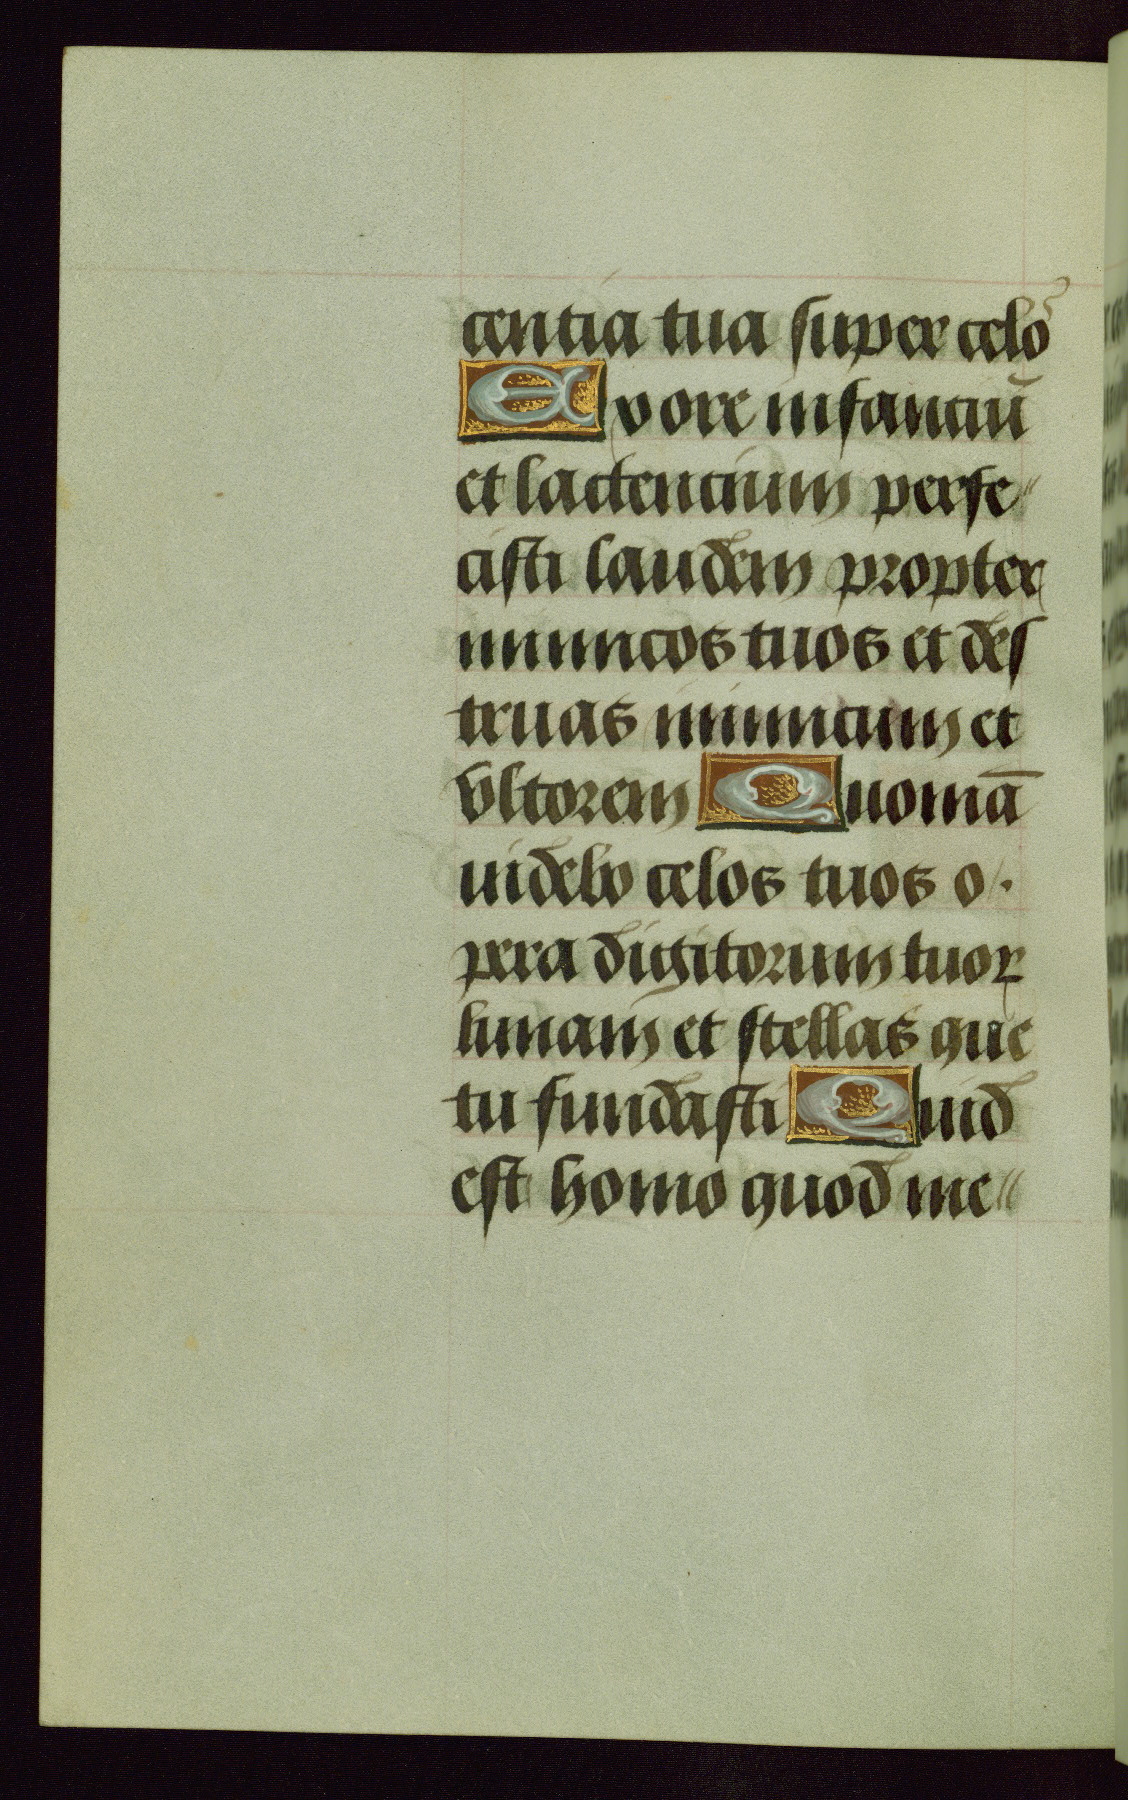 centia tua super celoˢ
Ex ore infanciū
et lactencium perfe
cisti laudem propter
inimicos tuos et des
truas inimicum et
vltorem Quoniā
uidebo celos tuos o
pera digitorum tuoꝝ
lunam et stellas que
tu fundasti Quid
est homo quod me